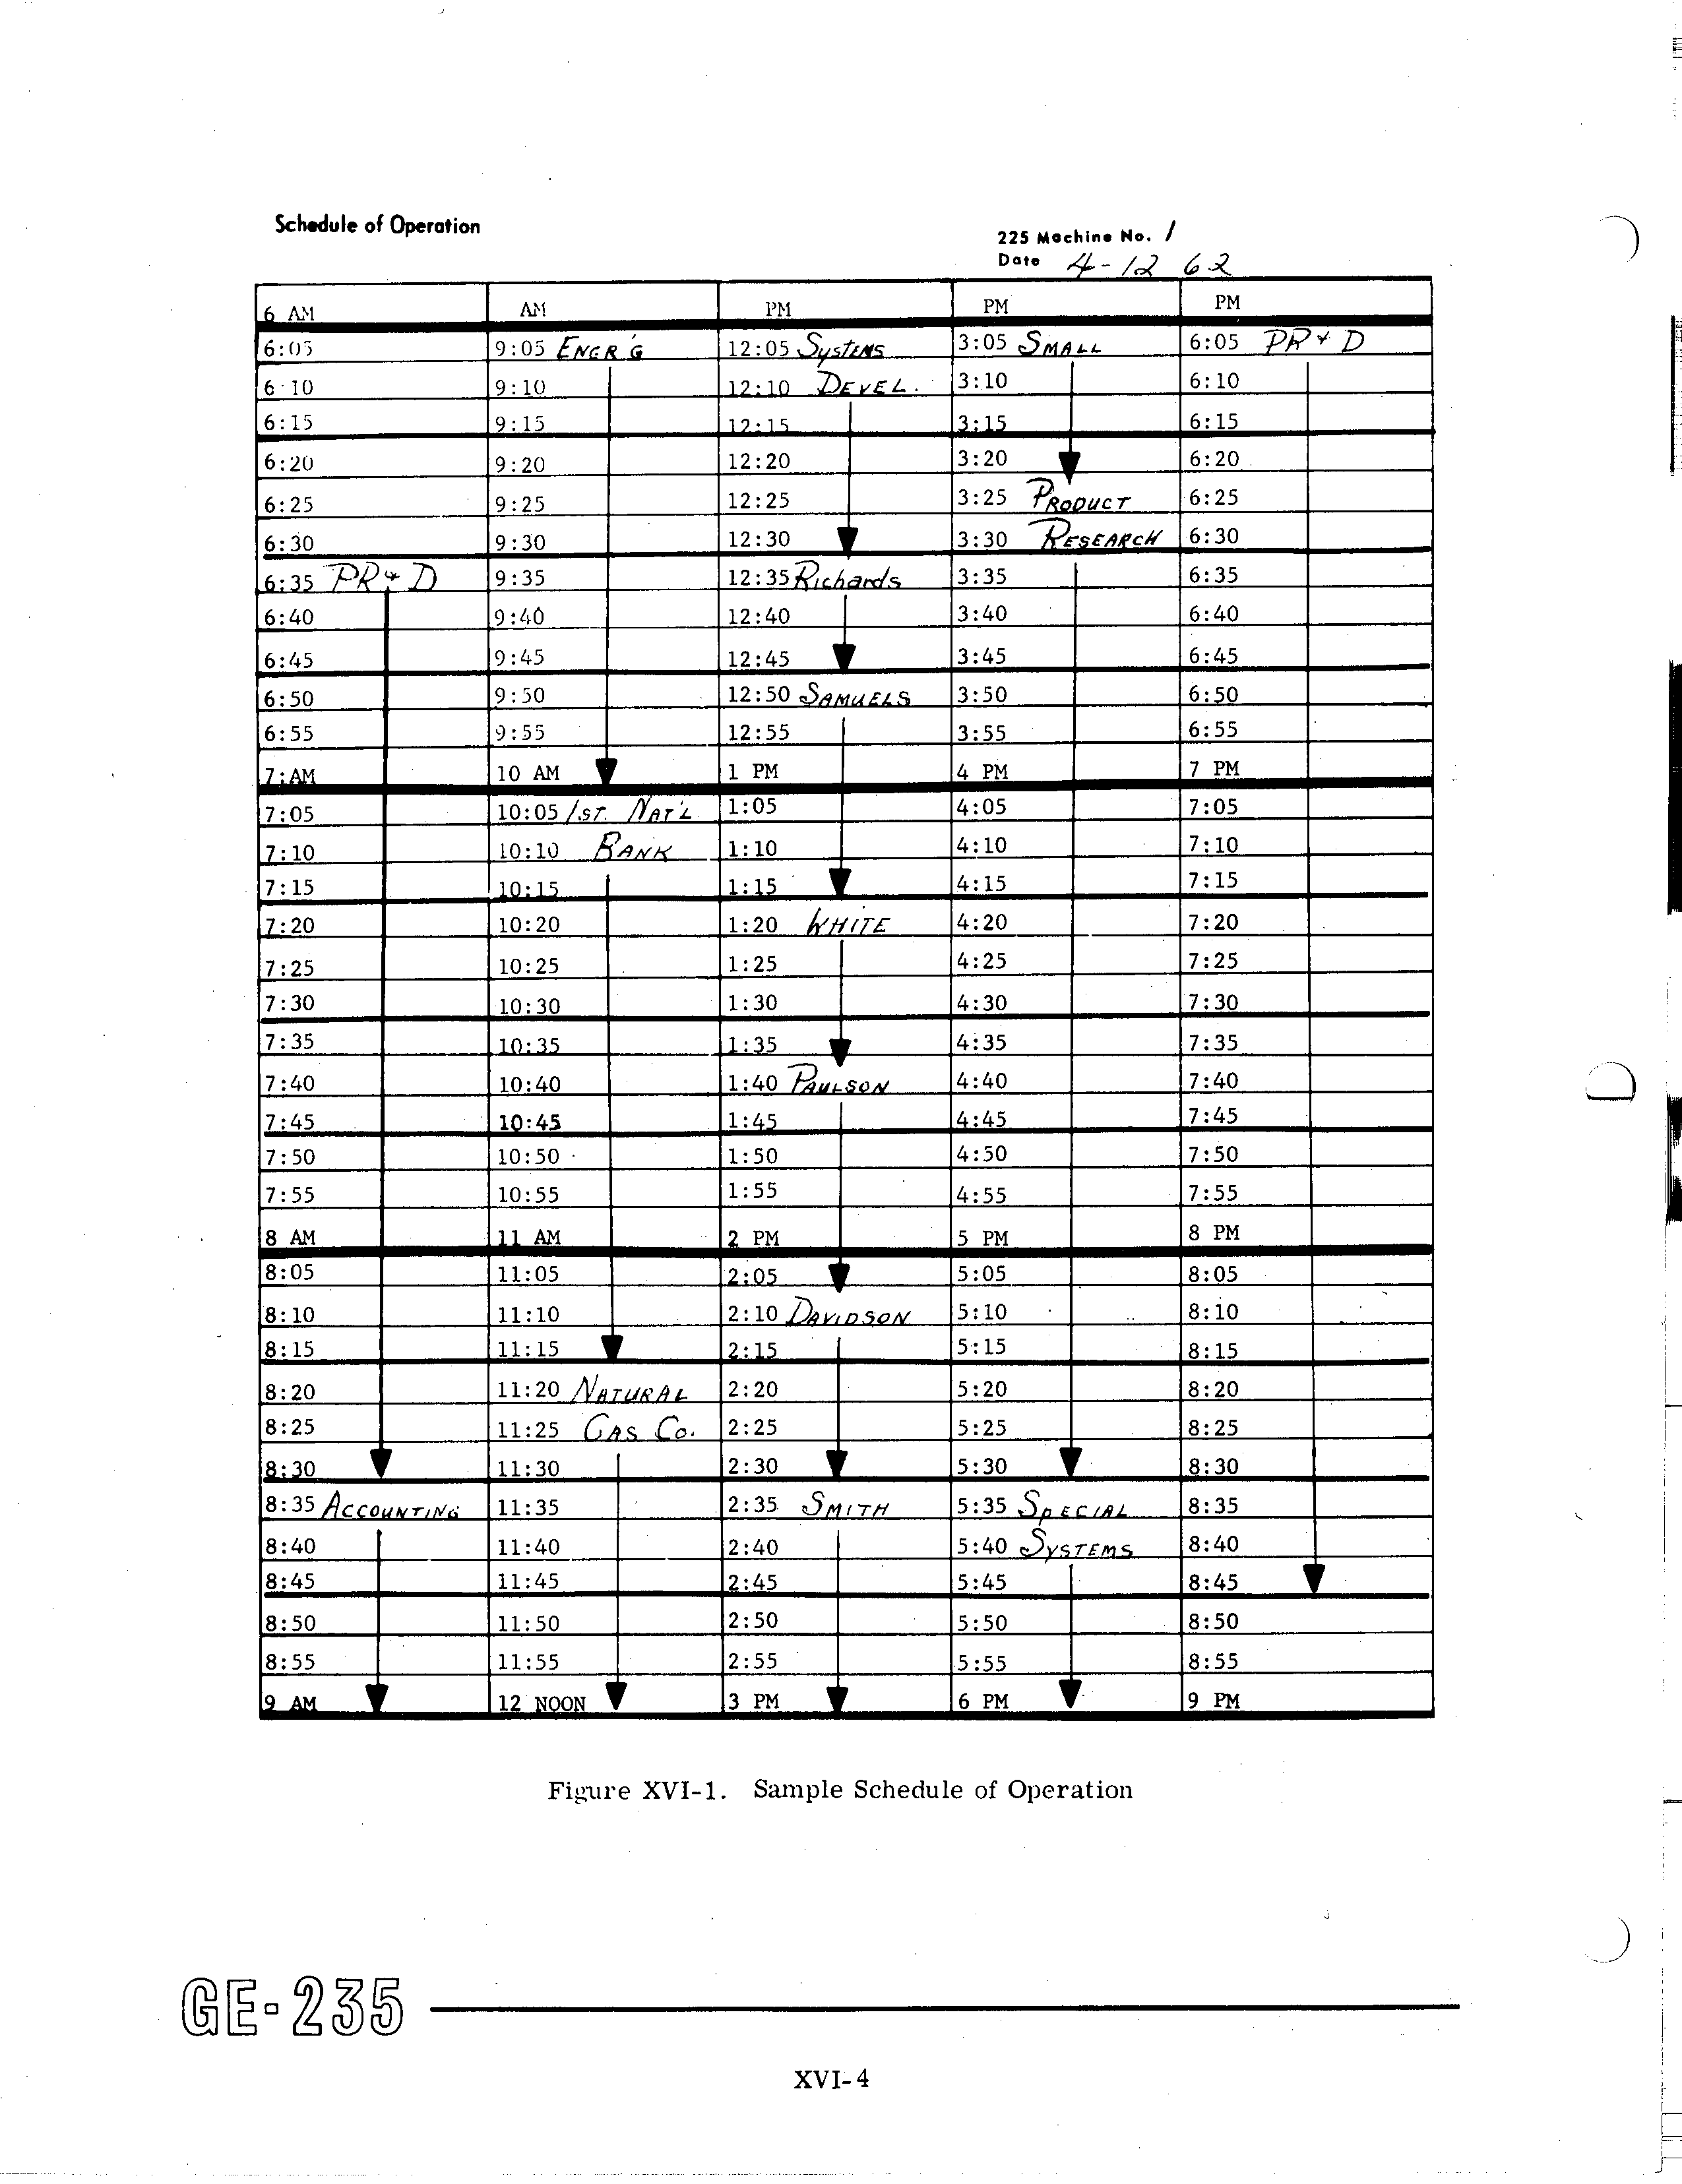 Schedule of Operation
225 Machine No. 1
Date 4-12 62
6 AM AM PM PM PM
6:05 9:05 ENGR'G 12:05 SYSTEMS 3:05 SMALL 6:05 PR & D
6:10 9:10 12:10 DEVEL. 3:10 6:10
6:15 9:15 12:15 3:15 6:15
6:20 9:20 12:20 3:20 6:20
6:25 9:25 12:25 3:25 PRODUCT 6:25
6:30 9:30 12:30 3:30 RESEARCH 6:30
6:35 PR & D 9:35 12:35 Richards 3:35 6:35
6:40 9:40 12:40 3:40 6:40
6:45 9:45 12:45 3:45 6:45
6:50 9:50 12:50 SAMUELS 3:50 6:50
6:55 9:55 12:55 3:55 6:55
7:AM 10 AM 1 PM 4 PM 7 PM
7:05 10:05 1ST. NAT'L 1:05 4:05 7:05
7:10 10:10 BANK 1:10 4:10 7:10
7:15 10:15 1:15 4:15 7:15
7:20 10:20 1:20 WHITE 4:20 7:20
7:25 10:25 1:25 4:25 7:25
7:30 10:30 1:30 4:30 7:30
7:35 10:35 1:35 4:35 7:35
7:40 10:40 1:40 PAULSON 4:40 7:40
7:45 10:45 1:45 4:45 7:45
7:50 10:50 1:50 4:50 7:50
7:55 10:55 1:55 4:55 7:55
8 AM 11 AM 2 PM 5 PM 8 PM
8:05 11:05 2:05 5:05 8:05
8:10 11:10 2:10 DAVIDSON 5:10 8:10
8:15 11:15 2:15 5:15 8:15
8:20 11:20 NATURAL 2:20 5:20 8:20
8:25 11:25 GAS CO. 2:25 5:25 8:25
8:30 11:30 2:30 5:30 8:30
8:35 ACCOUNTING 11:35 2:35 SMITH 5:35 SPECIAL 8:35
8:40 11:40 2:40 5:40 SYSTEMS 8:40
8:45 11:45 2:45 5:45 8:45
8:50 11:50 2:50 5:50 8:50
8:55 11:55 2:55 5:55 8:55
9 AM 12 NOON 3 PM 6 PM 9 PM
Figure XVI-1. Sample Schedule of Operation
GE-235
XVI-4